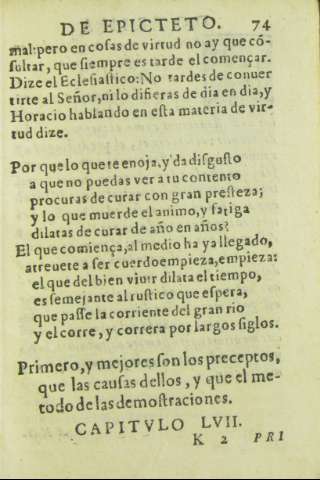 DE EPICTETO. 74
mal: pero en cosas de virtud no ay que cõ-
sultar, que siempre es tarde el començar.
Dize el Eclesiastico: No tardes de conuer
tirte al Señor, ni lo difieras de dia en dia, y
Horacio hablando en esta materia de vir-
tud dize.
Por que lo que te enoja, y da disgusto
a que no puedas ver a tu contento
procuras de curar con gran presteza;
y lo que muerde el animo, y fatiga
dilatas de curar de año en años?
El que comiença, al medio ha ya llegado,
atreuete a ser cuerdo empieza, empieza:
el que del bien viuir dilata el tiempo,
es semejante al rustico que espera,
que passe la corriente del gran rio
y el corre, y correra por largos siglos.
Primero, y mejores son los preceptos,
que las causas dellos, y que el me-
todo de las demostraciones.
CAPITVLO LVII.
K 2 PRI